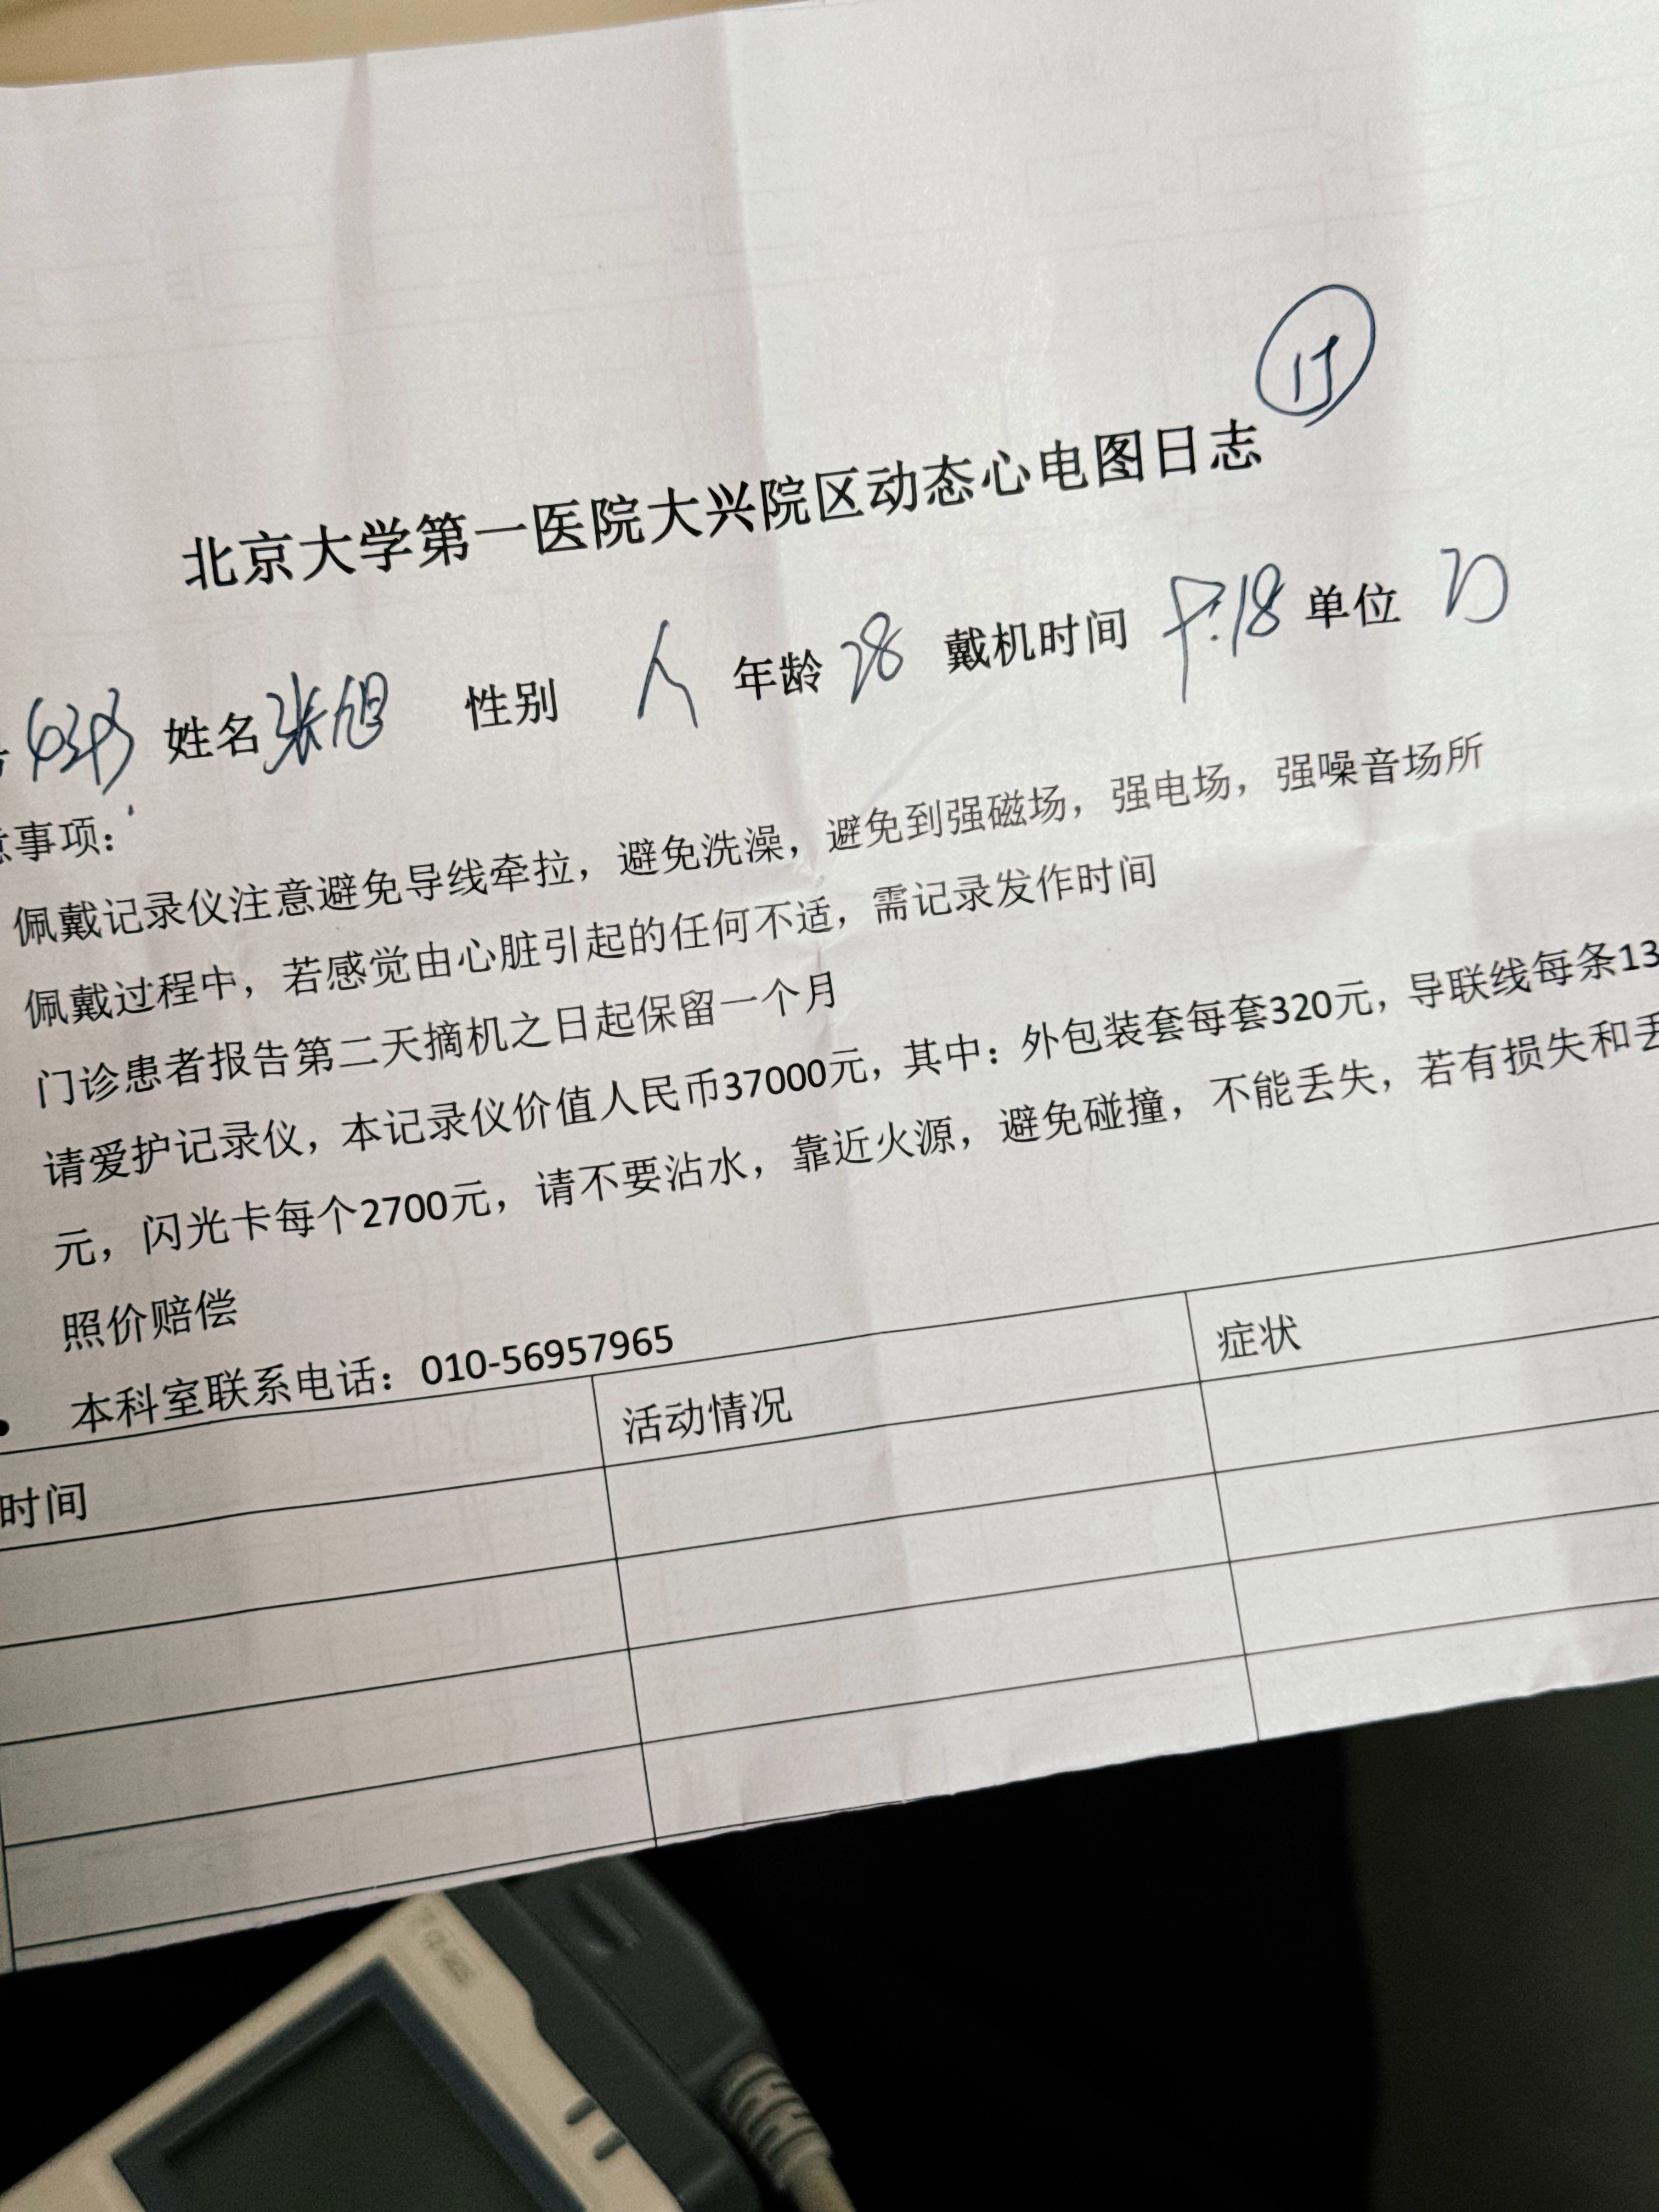 北京大学第一医院大兴院区动态心电图日志
姓名张旭 性别 年龄28 戴机时间 单位
意事项：
佩戴记录仪注意避免导线牵拉，避免洗澡，避免到强磁场，强电场，强噪音场所
佩戴过程中，若感觉由心脏引起的任何不适，需记录发作时间
门诊患者报告第二天摘机之日起保留一个月
请爱护记录仪，本记录仪价值人民币37000元，其中：外包装套每套320元，导联线每条13
元，闪光卡每个2700元，请不要沾水，靠近火源，避免碰撞，不能丢失，若有损失和丢
照价赔偿
• 本科室联系电话：010-56957965
时间 活动情况 症状